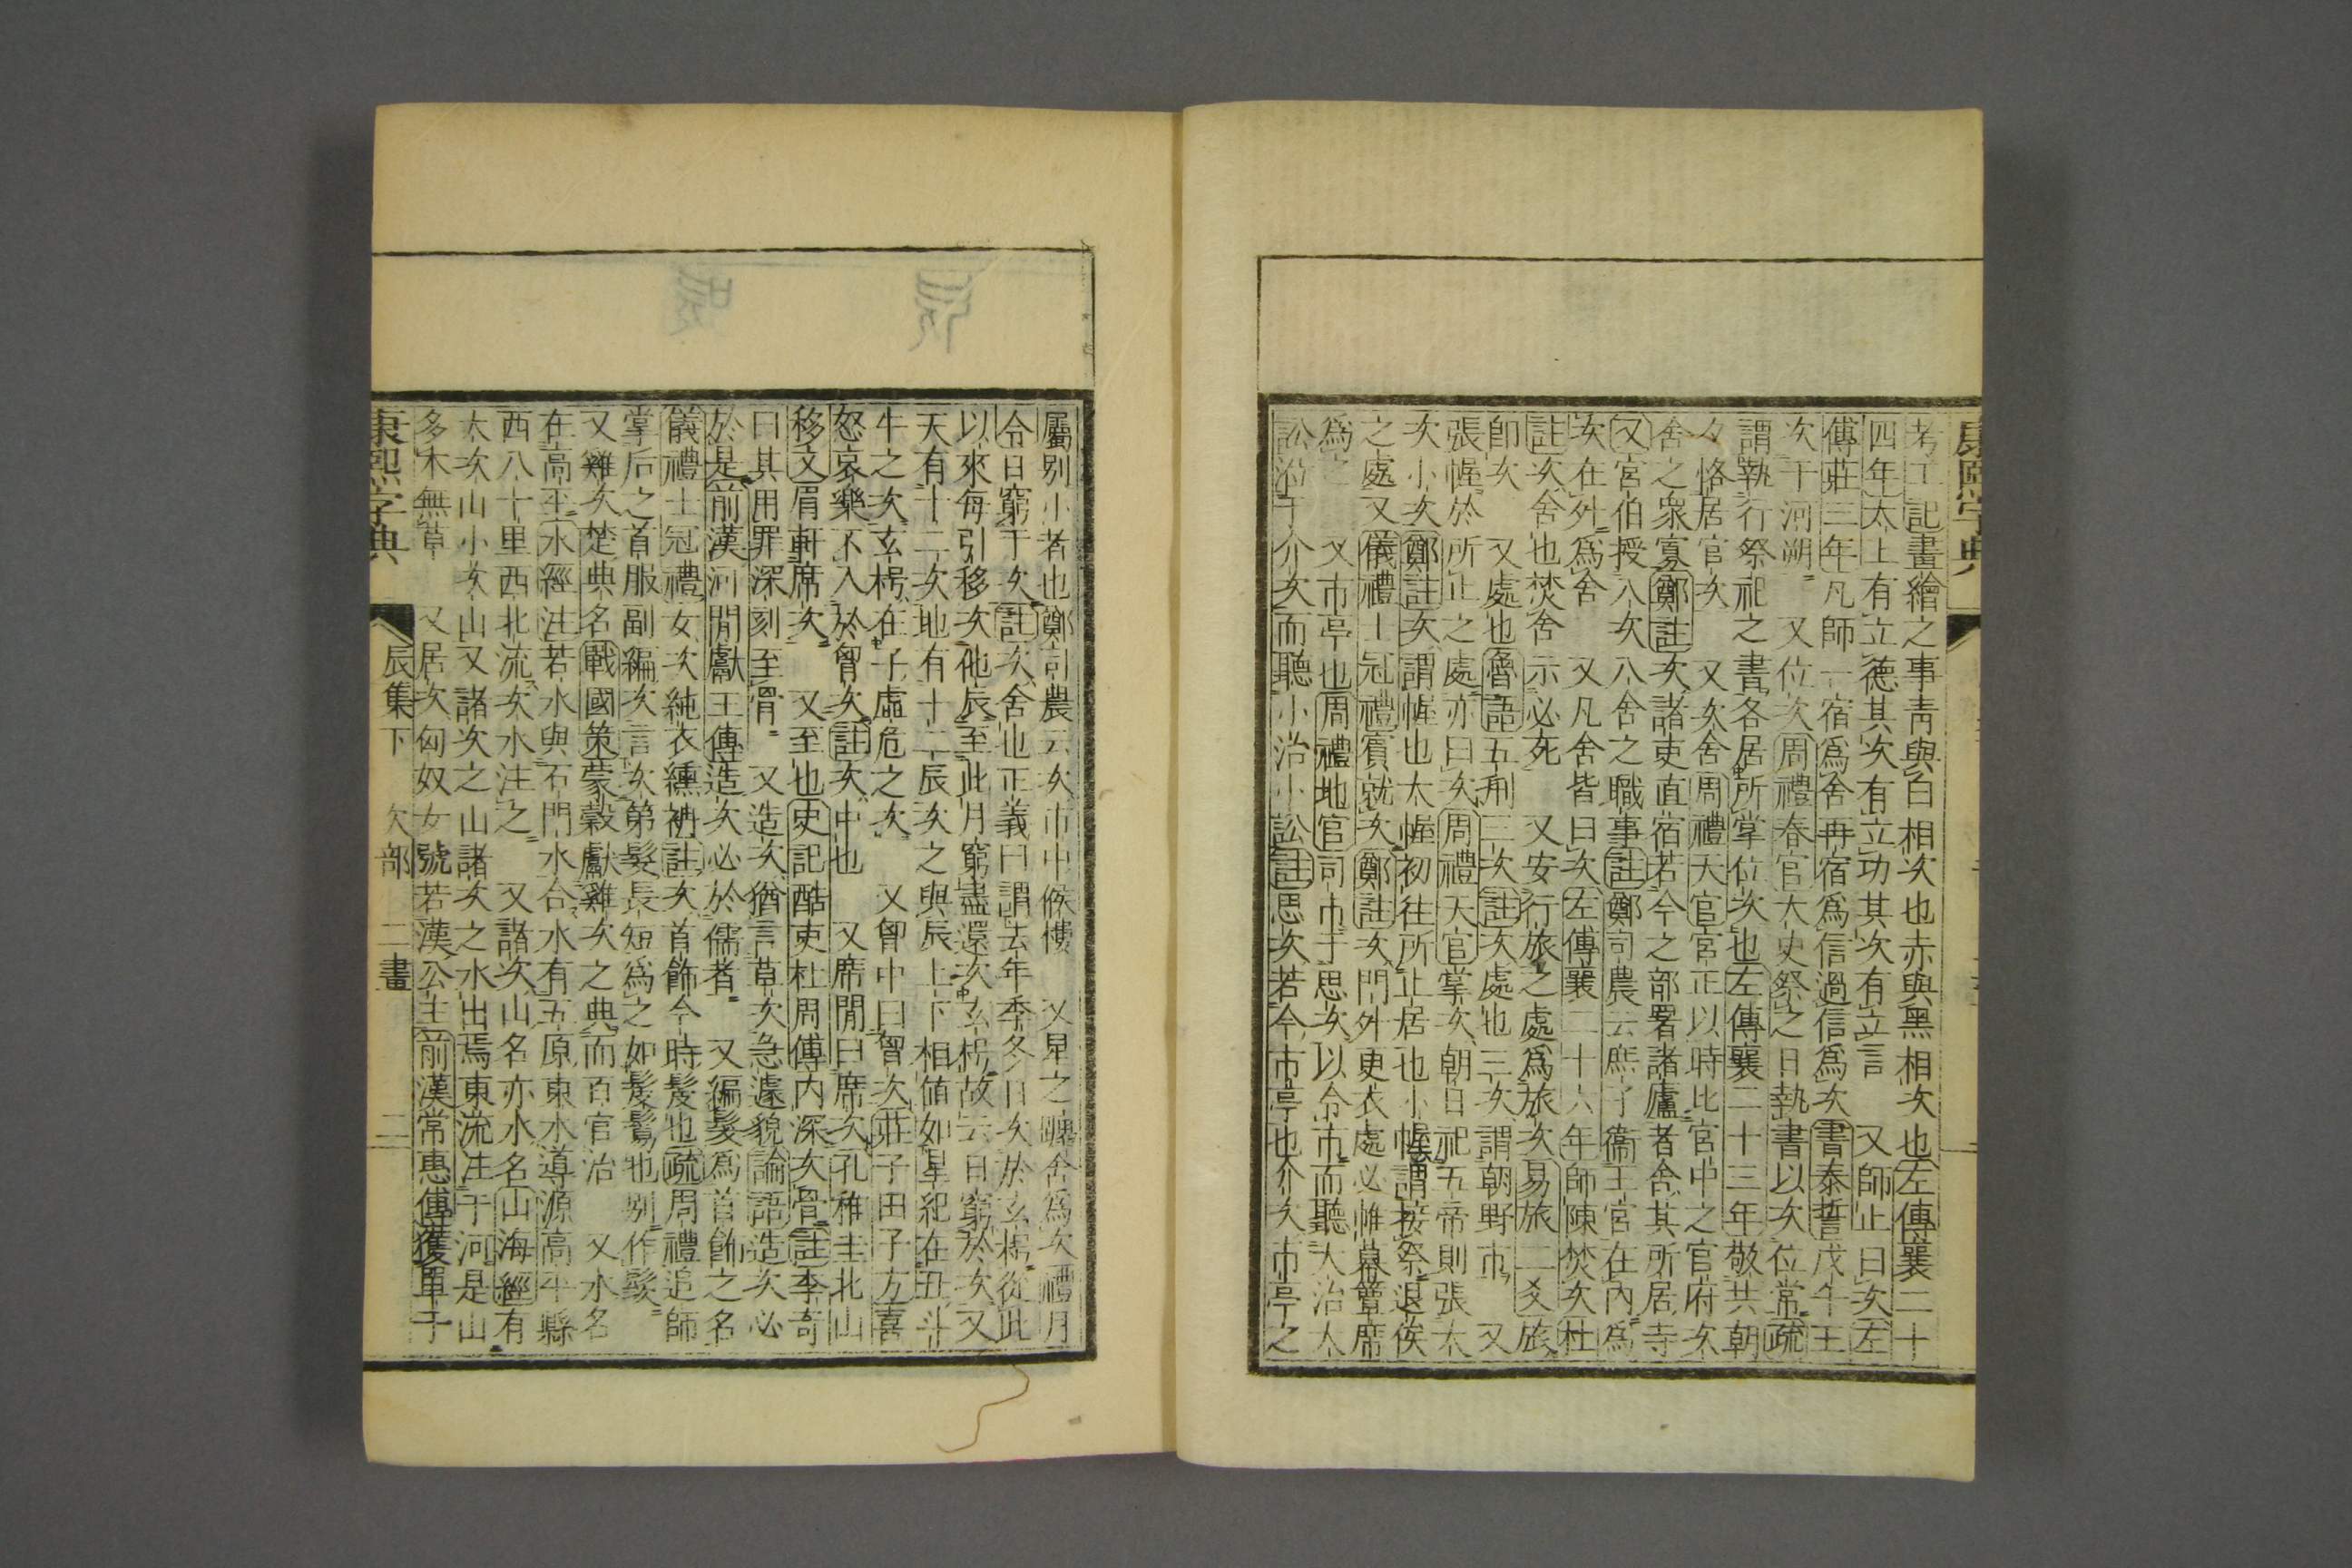 考工記畫繪之事靑與白相次也赤與黑相次也左傳襄二十
四年太上有立德其次有立功其次有立言 又師止曰次左
傳莊三年凡師一宿爲舍再宿爲信過信爲次書泰誓戊午王
次于河朔 又位次周禮春官大史祭之日執書以次位常疏
謂執行祭祀之書各居所掌位次也左傳襄二十三年敬共朝
夕恪居官次 又次舍周禮天官宮正以時比宮中之官府次
舍之衆寡鄭註次諸吏直宿若今之部署諸廬者舍其所居寺
又宮伯授八次八舍之職事註鄭司農云庶子衞王宮在內爲
次在外爲舍 又凡舍皆曰次左傳襄二十六年師陳焚次杜
註次舍也焚舍示必死 又安行旅之處爲旅次易旅二爻旅
卽次 又處也魯語五刑三次註次處也三次謂朝野市 又
張幄於所止之處亦曰次周禮天官掌次朝日祀五帝則張大
次小次鄭註次謂幄也大幄初往所止居也小幄謂接祭退俟
之處又儀禮士冠禮賓就次鄭註次門外更衣處必帷幕簟席
爲之 又市亭也周禮地官司市于思次以令市而聽大治大
訟涖于介次而聽小治小訟註思次若今市亭也介次市亭之
康熙字典
屬别小者也鄭司農云次市中候樓 又星之躔舍爲次禮月
令日窮于次註次舍也正義曰謂去年季冬日次於玄枵從此
以來每引移次他辰至此月窮盡還次玄枵故云日窮於次又
天有十二次地有十二辰次之與辰上下相値如星紀在丑斗
牛之次玄枵在子虛危之次 又胷中曰胷次莊子田子方喜
怒哀樂不入於胷次註次中也 又席閒曰席次孔稚圭北山
移文眉軒席次 又至也史記酷吏杜周傳內深次骨註李奇
曰其用罪深刻至骨 又造次猶言草次急遽貌論語造次必
於是前漢河閒獻王傳造次必於儒者 又編髮爲首飾之名
儀禮士冠禮女次純衣纁袡註次首飾今時髲也疏周禮追師
掌后之首服副編次言次第髮長短爲之如髲鬄也别作髮
又雞次楚典名戰國策蒙榖獻雞次之典而百官治 又水名
在高平水經注若水與石門水合水有五原東水導源高平縣
西八十里西北流次水注之 又諸次山名亦水名山海經有
太次山小次山又諸次之山諸次之水出焉東流注于河是山
多木無草 又居次匈奴女號若漢公主前漢常惠傳獲單于
康熙字典 辰集下 欠部 二畫 二